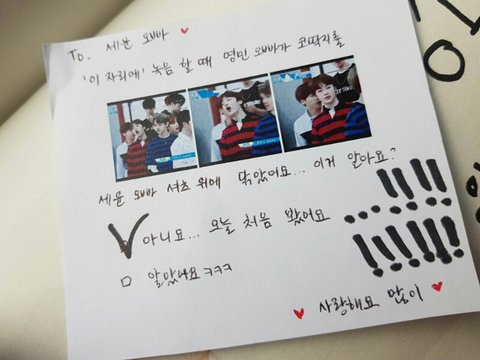 To. 세윤 오빠 ♥
'이 자리에' 녹음 할 때 영민 오빠가 코딱지를
세윤 오빠 셔츠 위에 닦았어요... 이거 알아요?
✓ 아니요... 오늘 처음 봤어요 ...!!!!
...!!!!!!
□ 알았나요ㅋㅋㅋ
♥ 사랑해요 많이 ♥